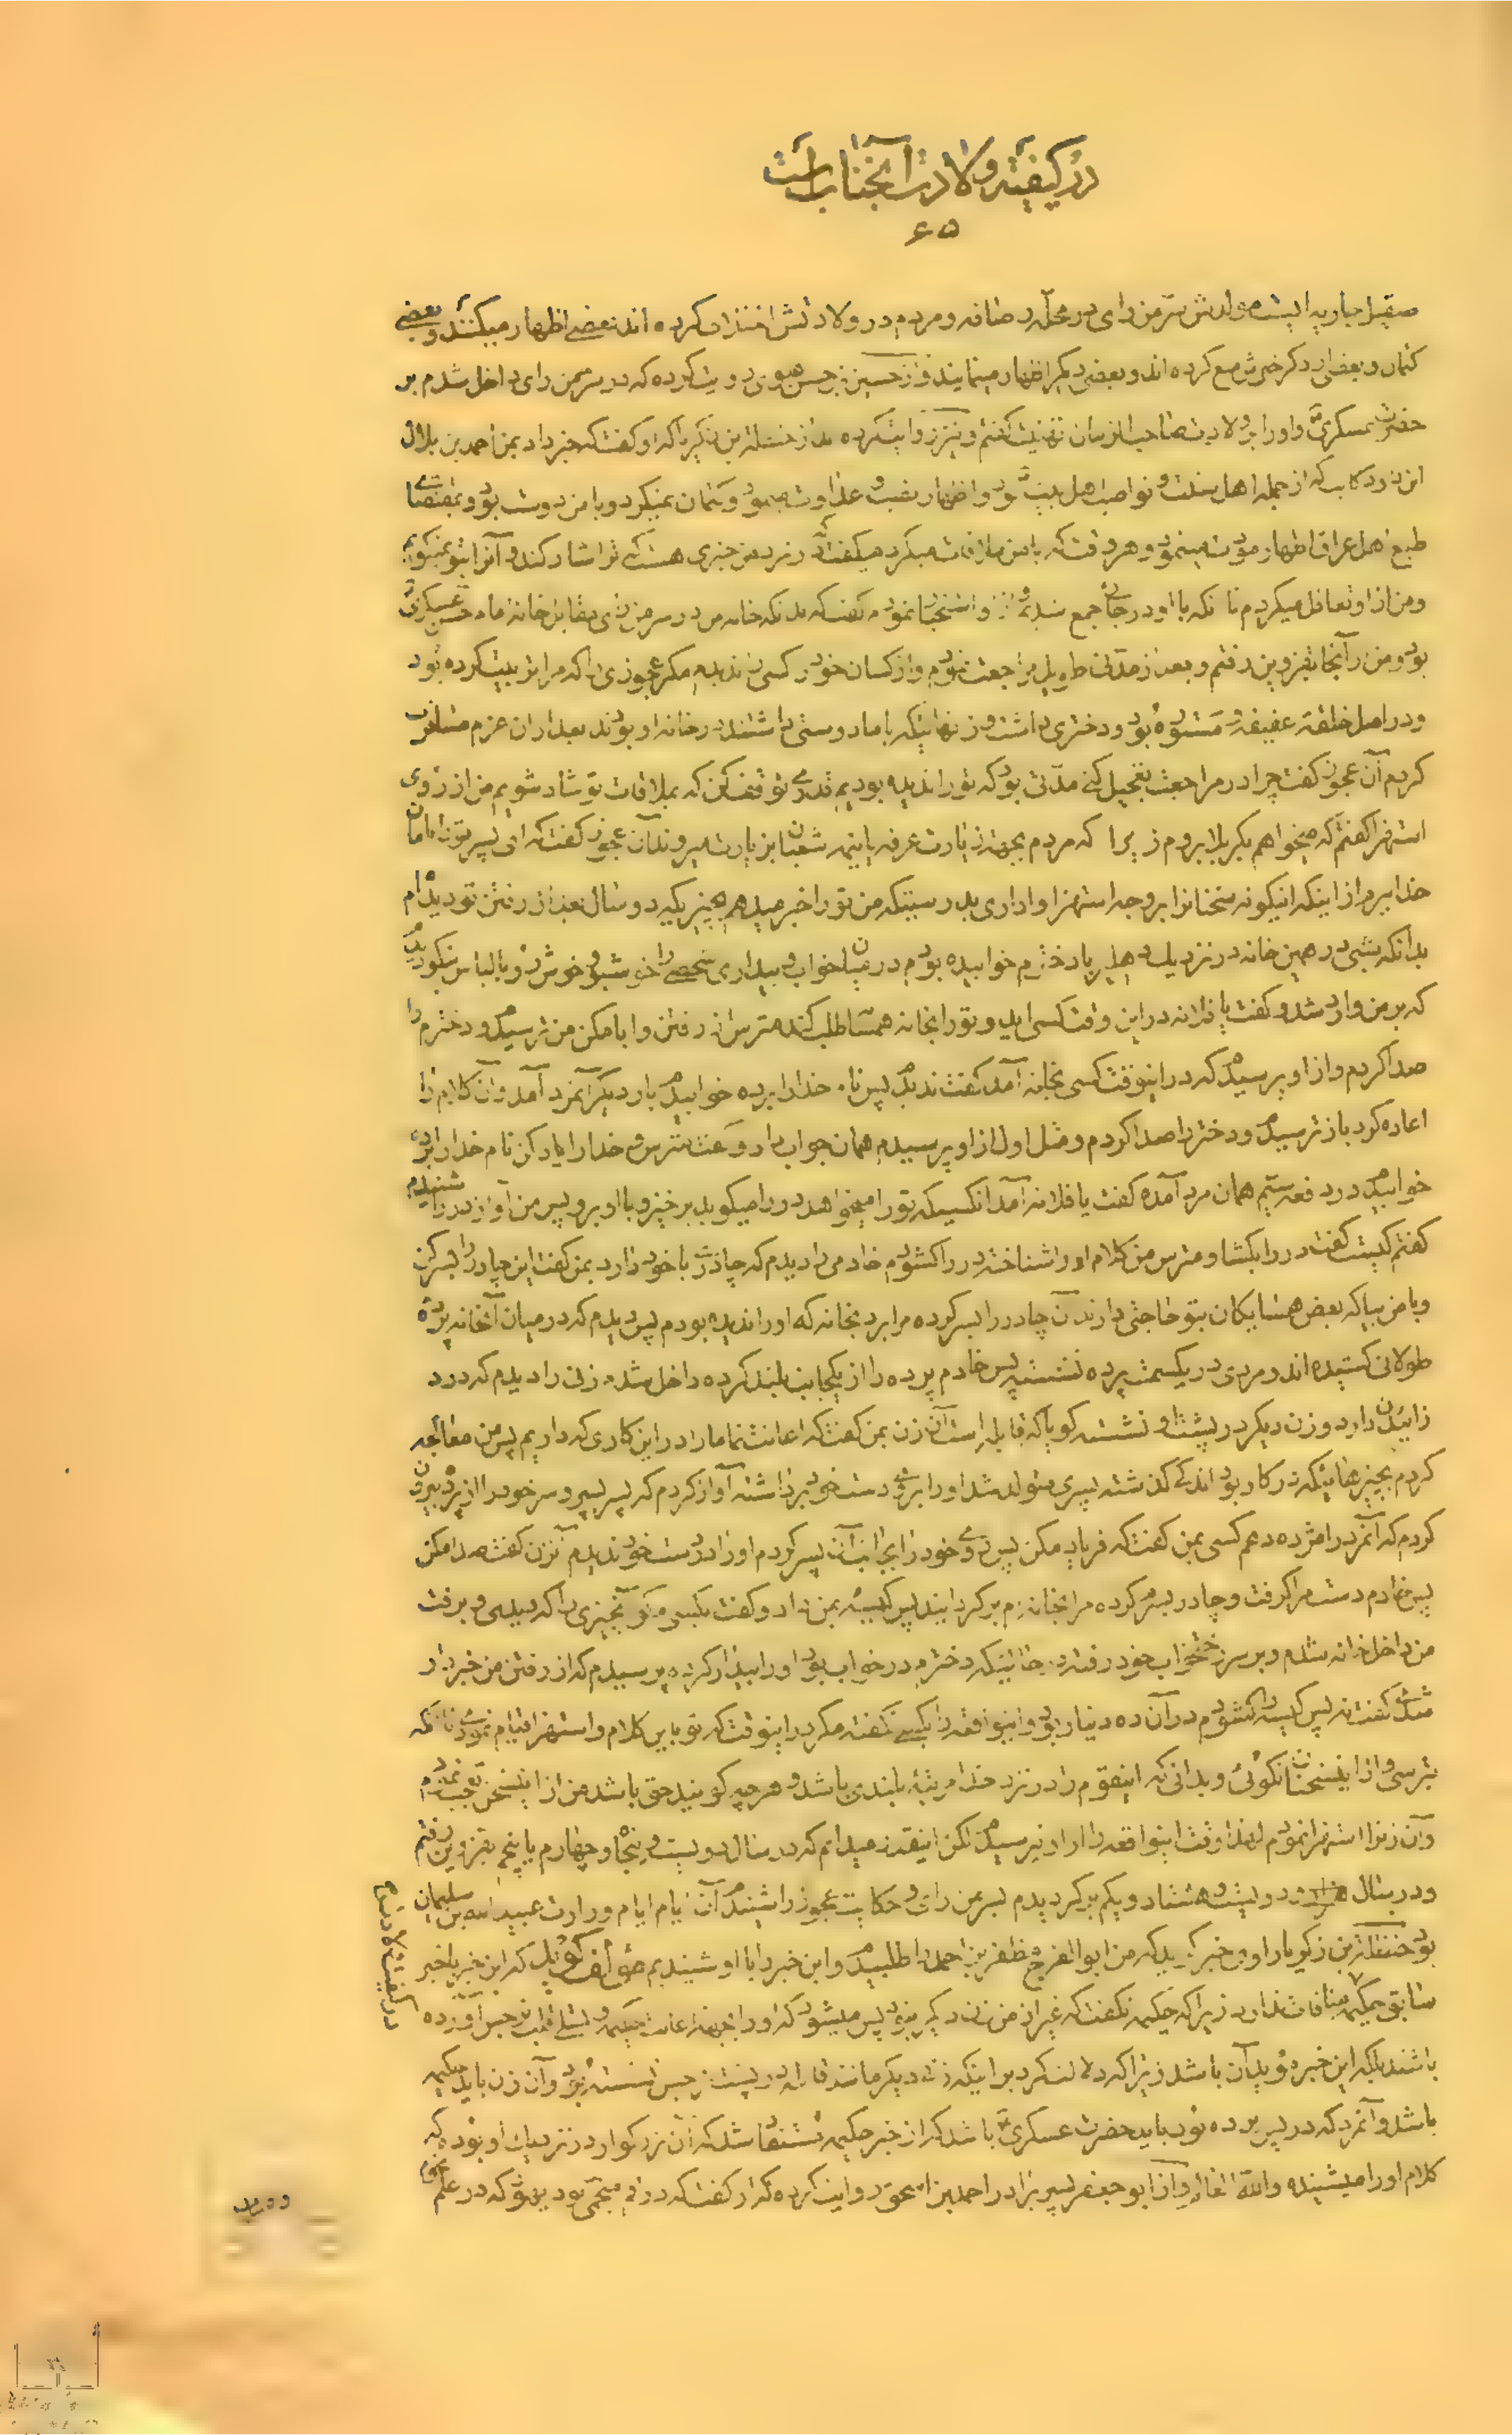 در کیفیت ولادت آنجناب است
۶۵
صیقل جاریه است مولدش سرمن رای در محله رصافه و مردم در ولادتش اختلاف کرده اند بعضی اظهار میکنند و بعضی
کتمان و بعضی از ذکر خبرش منع کرده اند و بعضی دیگر اظهار مینمایند و از حسین بن حسن علوی روایت کرده که در سرمن رای داخل شدم بر
حضرت عسکری و او را بولادت صاحب الزمان تهنیت گفتم و نیز روایت کرده از حنظلة بن زکریا که او گفت که خبر داد بمن احمد بن بلال
ابن داود کاتب که از جمله اهل سنت و نواصب اهل بیت بود و اظهار نصب و عداوت مینمود و کتمان نمیکرد و با من دوست بود و بمقتضای
طبع اهل عراق اظهار مودت مینمود و هر وقت که با من ملاقات میکرد میگفت که در نزد من خبری هست که ترا شاد کند و آنرا بتو نمیگویم
و من از او تغافل میکردم تا آنکه با او در جائی جمع شدیم و از او استخبار نمودم گفت که بدانکه خانه من در سرمن رای مقابل خانه امام حسن عسکری
بود و من از آنجا بقزوین رفتم و بعد از مدتی طویل مراجعت نمودم و از کسان خود کسی را ندیدم مگر عجوزی را که مرا تربیت کرده بود
و در اصل خلقة عفیفه و مستوره بود و دختری داشت و زنهائیکه با ما دوستی داشتند در خانه او بودند بعد از آن عزم مسافرت
کردم آن عجوز گفت چرا در مراجعت تعجیل کنی مدتی بود که تو را ندیده بودیم قدری توقف کن که بملاقات تو شاد شویم من از روی
استهزا گفتم که میخواهم بکربلا بروم زیرا که مردم بجهة زیارت عرفه یا نیمه شعبان بزیارت میروند آن عجوز گفت که ای پسر تو را امان
خدا ببرم از اینکه اینگونه سخنانرا بر وجه استهزا واداری بدرستیکه من تو را خبر میدهم بچیزیکه دو سال بعد از رفتن تو دیده ام
بدانکه شبی در همین خانه در نزدیک دهلیز با دخترم خوابیده بودم در میان خواب و بیداری شخصی را خوشبو و خوش رو با لباس نیکو دیدم
که بر من وارد شد و گفت یا فلانه در این وقت کسی اید و تو را بخانه همسا طلب کند مترس از رفتن و ابا مکن من ترسیدم و دخترم را
صدا کردم و از او پرسیدم که در اینوقت کسی بخانه آمد گفت ندیدم پس نام خدا را برده خوابیدم بار دیگر آنمرد آمد و آن کلام را
اعاده کرد باز ترسیدم و دختر را صدا کردم و مثل اول از او پرسیدم همان جواب داد و گفت مترس و خدا را یاد کن نام خدا را برده
خوابیدم در دفعه سیم همان مرد آمده گفت یا فلانه آمد انکسیکه تو را میخواهد در را میکوبد برخیز و با او برو پس من آواز در را شنیدم
گفتم کیست گفت در را بگشا و مترس من کلام او را شناخته در را گشودم خادمی را دیدم که چادری با خود دارد بمن گفت این چادر را بسر کن
و با من بیا که بعض همسایگان بتو حاجتی دارند آن چادر را بسر کرده مرا برد بخانه که او را ندیده بودم پس دیدم که در میان آنخانه پرده
طولانی کشیده اند و مردی در یکسمت پرده نشسته پس خادم پرده را از یکجانب بلند کرده داخل شدم زنی را دیدم که درد
زائیدن دارد و زن دیگر در پشت او نشسته گویا که قابله است آن زن بمن گفت که اعانت نما ما را در این کاری که داریم پس من معالجه
کردم بچیزهائیکه در کار بود اندکی گذشته پسری متولد شد او را بروی دست خود برداشته آواز کردم که پسر پسر و سر خود را از پرده بیرون
کردم که آنمرد را مژده دهم کسی بمن گفت که فریاد مکن پس روی خود را بجانب آن پسر کردم او را در دست خود ندیدم آنزن گفت صدا مکن
پس خادم دست مرا گرفت و چادر بسرم کرده مرا بخانه ام برگردانید پس کیسه بمن داد و گفت بکسی مگو آنچیزی را که دیدی و برفت
من داخل خانه شدم و بر سر رختخواب خود رفته در حالتیکه دخترم در خواب بود او را بیدار کرده پرسیدم که از رفتن من خبردار
شدی گفت نه پس کیسه را گشودم در آن ده دینار بود و اینواقعه را بکسی نگفته مگر در اینوقت که تو باین کلام و استهزا قیام نمودی تا آنکه
بترسی و از این سخنان نگوئی و بدانی که اینقوم را در نزد خدا مرتبه بلندی باشد و هر چه گویند حق باشد من از اینسخن تعجب نمودم
و آن زنرا استهزا نمودم لهذا وقت اینواقعه را از او نپرسیدم لکن اینقدر میدانم که در سال دویست و پنجاه و چهارم یا پنجم بقزوین رفتم
و در سال دویست و هشتاد و یکم برگردیدم بسرمن رای و حکایت عجوز را شنیدم آن ایام ایام وزارت عبیدالله بن سلیمان
بود حنظلة بن زکریا راوی خبر گوید که من ابوالفرج مظفر بن احمد را طلبیدم و این خبر را با او شنیدیم مؤلف گوید که این خبر با خبر
سابق حکیمه منافات ندارد زیرا که حکیمه نگفت که غیر از من زن دیگر نبود پس میشود که او را بجهة اعانت حکیمه و تسلی قلب نرجس آورده
باشند بلکه این خبر مؤید آن باشد زیرا که دلالت کرد بر اینکه زنی دیگر مانند قابله در پشت نرجس نشسته بود و آن زن باید حکیمه
باشد و آنمرد که در پس پرده بود باید حضرت عسکری باشد که از خبر حکیمه مستفاد شد که آن بزرگوار در نزدیک او بوده که
کلام او را میشنیده والله العالم و از ابوجعفر پسر برادر احمد بن اسحق روایت کرده که او گفت که در قم منجمی یهودی بود که در علم نجوم
در کیفیت ولادت